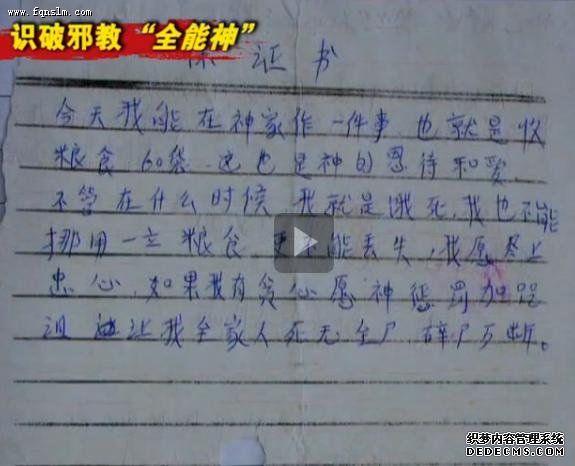 www.fqnslm.com
识破邪教 “全能神”
证 书
今天我能在神家作一件事.也就是收
粮食60袋.这也是神的恩待和爱.
不管在什么时候 我就是饿死,我也不能
挪用一立粮食.更不能丢失,我愿尽上
忠心.如果我有贪心愿神惩罚加咒
诅 让我全家人死无全尸,碎尸万断。
织梦内容管理系统
DEDECMS.COM